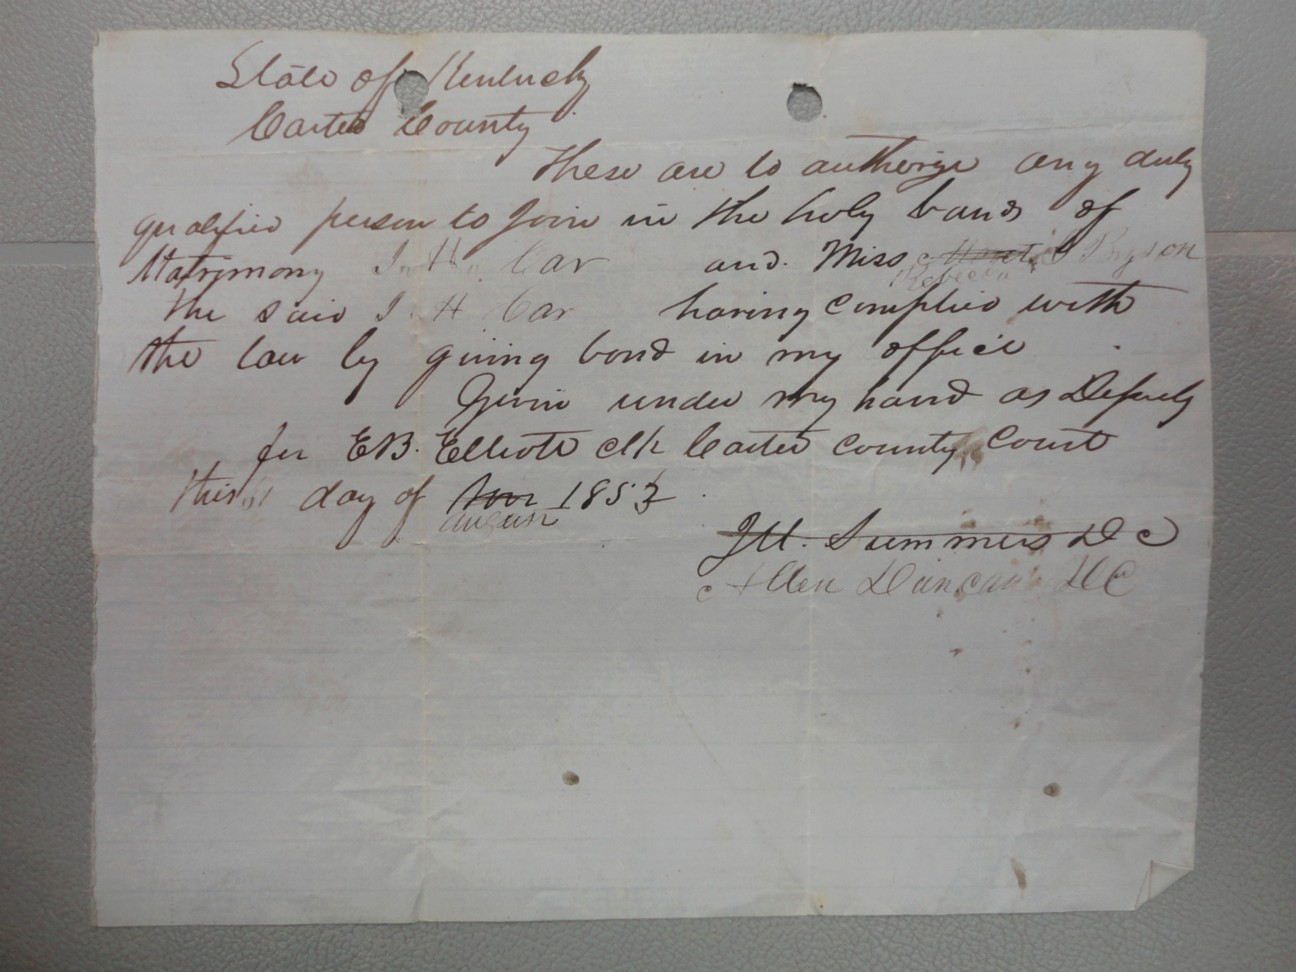 State of Kentucky
Carter County
These are to authorize any duly
qualified person to Join in the holy bands of
Matrimony Car and Miss Bryson
Rebecca
the said J. H Car having complied with
the law by giving bond in my office
Given under my hand as Deputy
for E.B. Elliott clk Carter County Court
this day of Nov 1853
august
J M. Summers D C
Allen Duncan DC